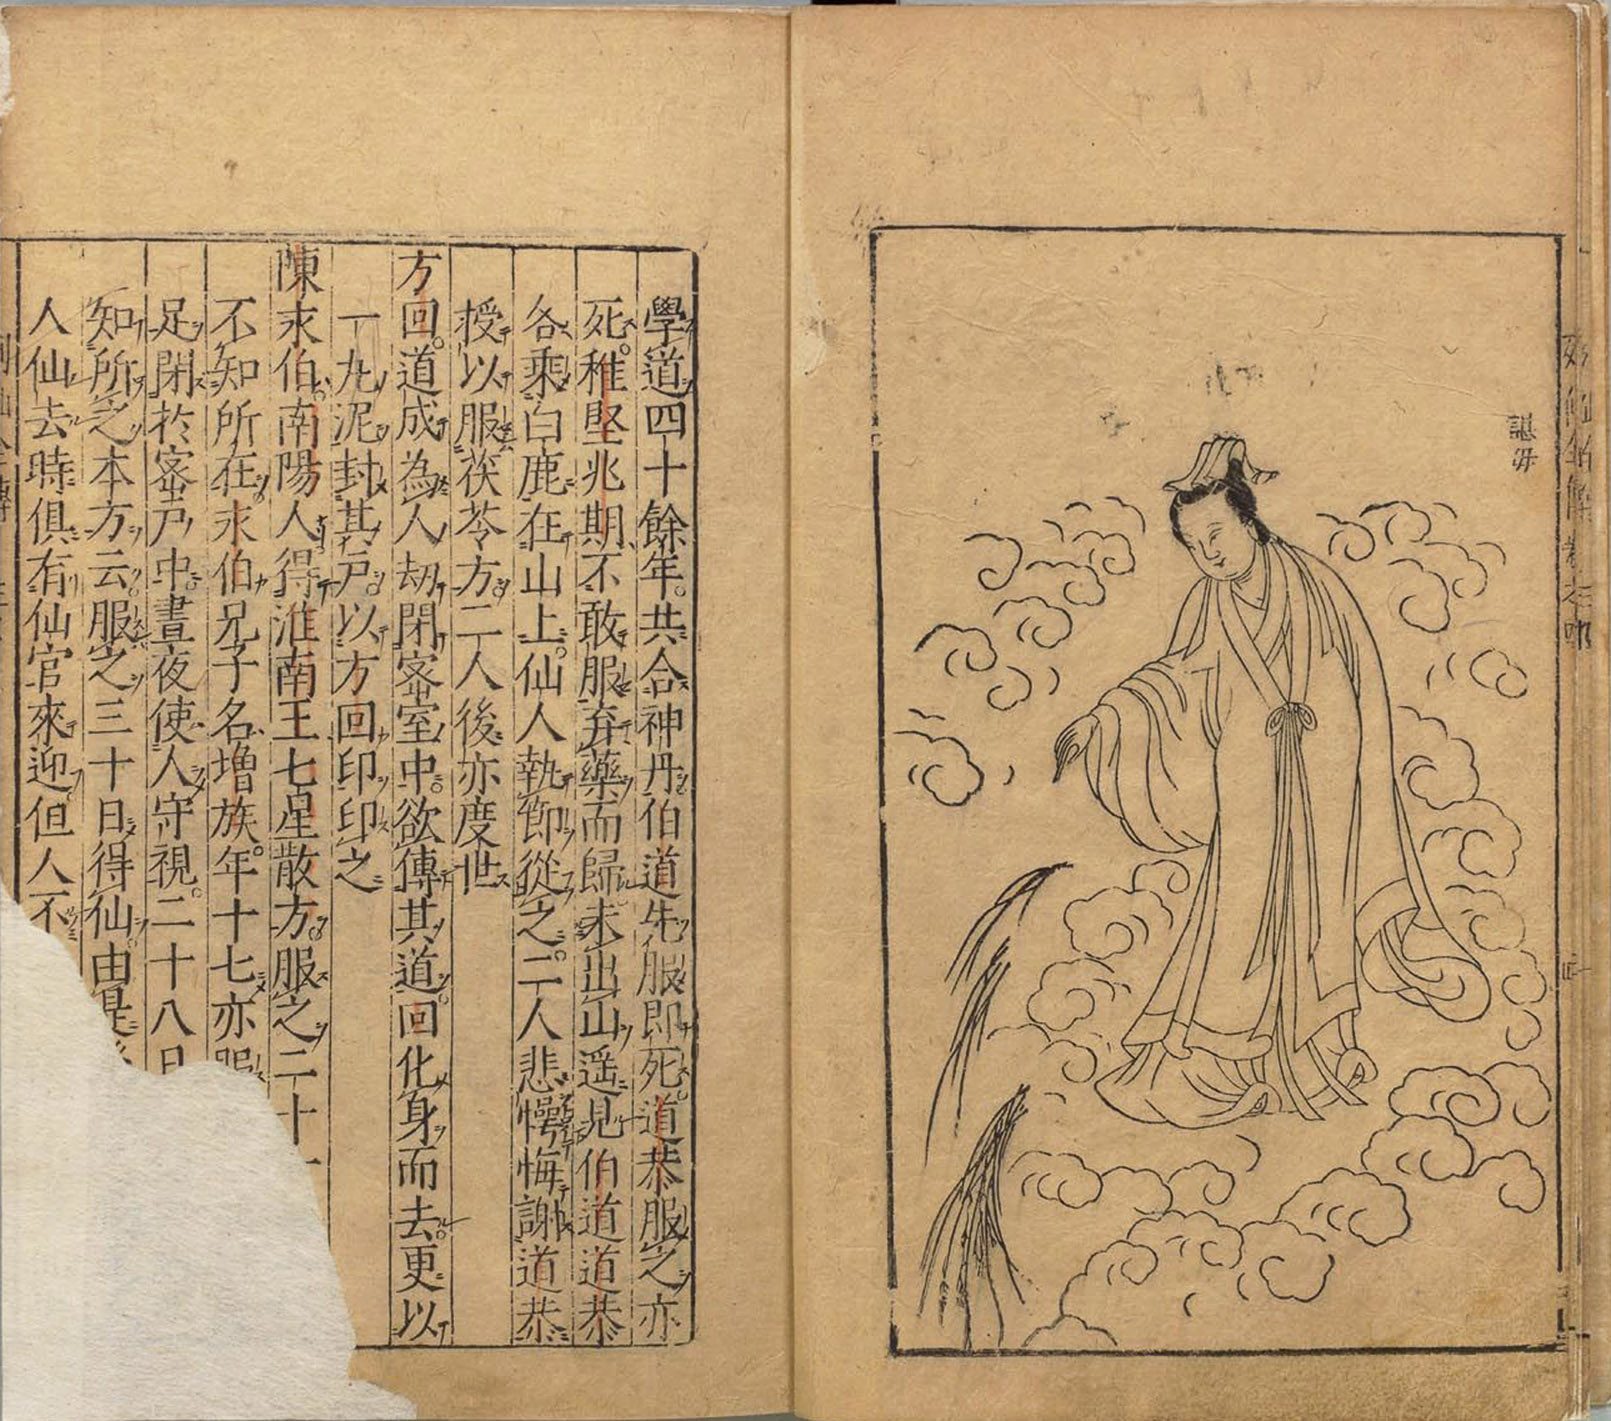 諶母
學道四十餘年。共合神丹伯道先服即死。道恭服之亦
死。稚堅兆期不敢服弃藥而歸未出山遥見伯道道恭
各乘白鹿在山上。仙人執節從之。二人悲愕悔謝道恭
授以服茯苓方二人後亦度世
方回。道成為人劫閉密室中。欲傳其道。回化身而去。更以
一丸泥封其戸以方回印印之
陳永伯。南陽人得淮南王七星散方。服之二十一
不知所在。永伯兄子名增族。年十七亦服
足閉於密戸中。晝夜使人守視。二十八日
知所之本方云服之三十日得仙。由是
人仙去時俱有仙官來迎但人不